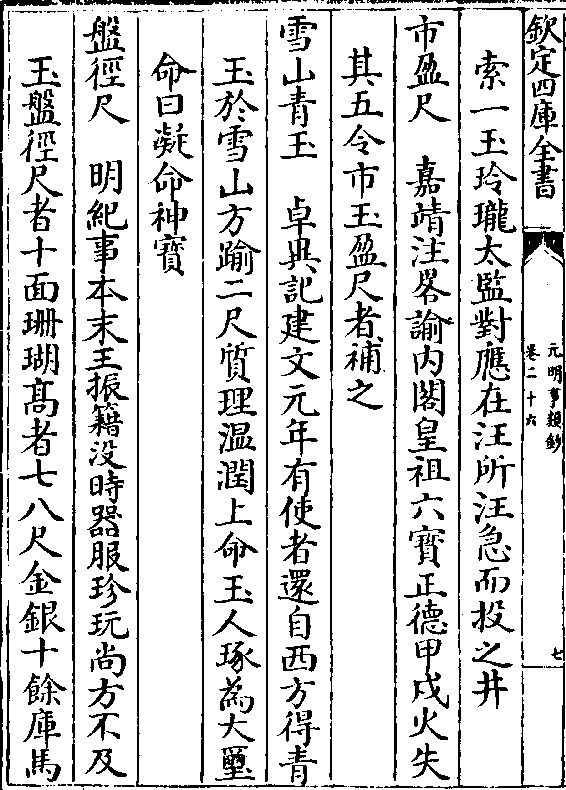 欽定四庫全書
元明事類鈔
卷二十六
七
索一玉玲瓏太監對應在汪所汪急而投之井
市盈尺　嘉靖注畧諭內閣皇祖六寳正德甲戌火失
其五令市玉盈尺者補之
雪山青玉　卓異記建文元年有使者還自西方得青
玉於雪山方踰二尺質理温潤上命玉人琢為大璽
命曰凝命神寳
盤徑尺　明紀事本末王振籍没時器服珍玩尚方不及
玉盤徑尺者十面珊瑚髙者七八尺金銀十餘庫馬